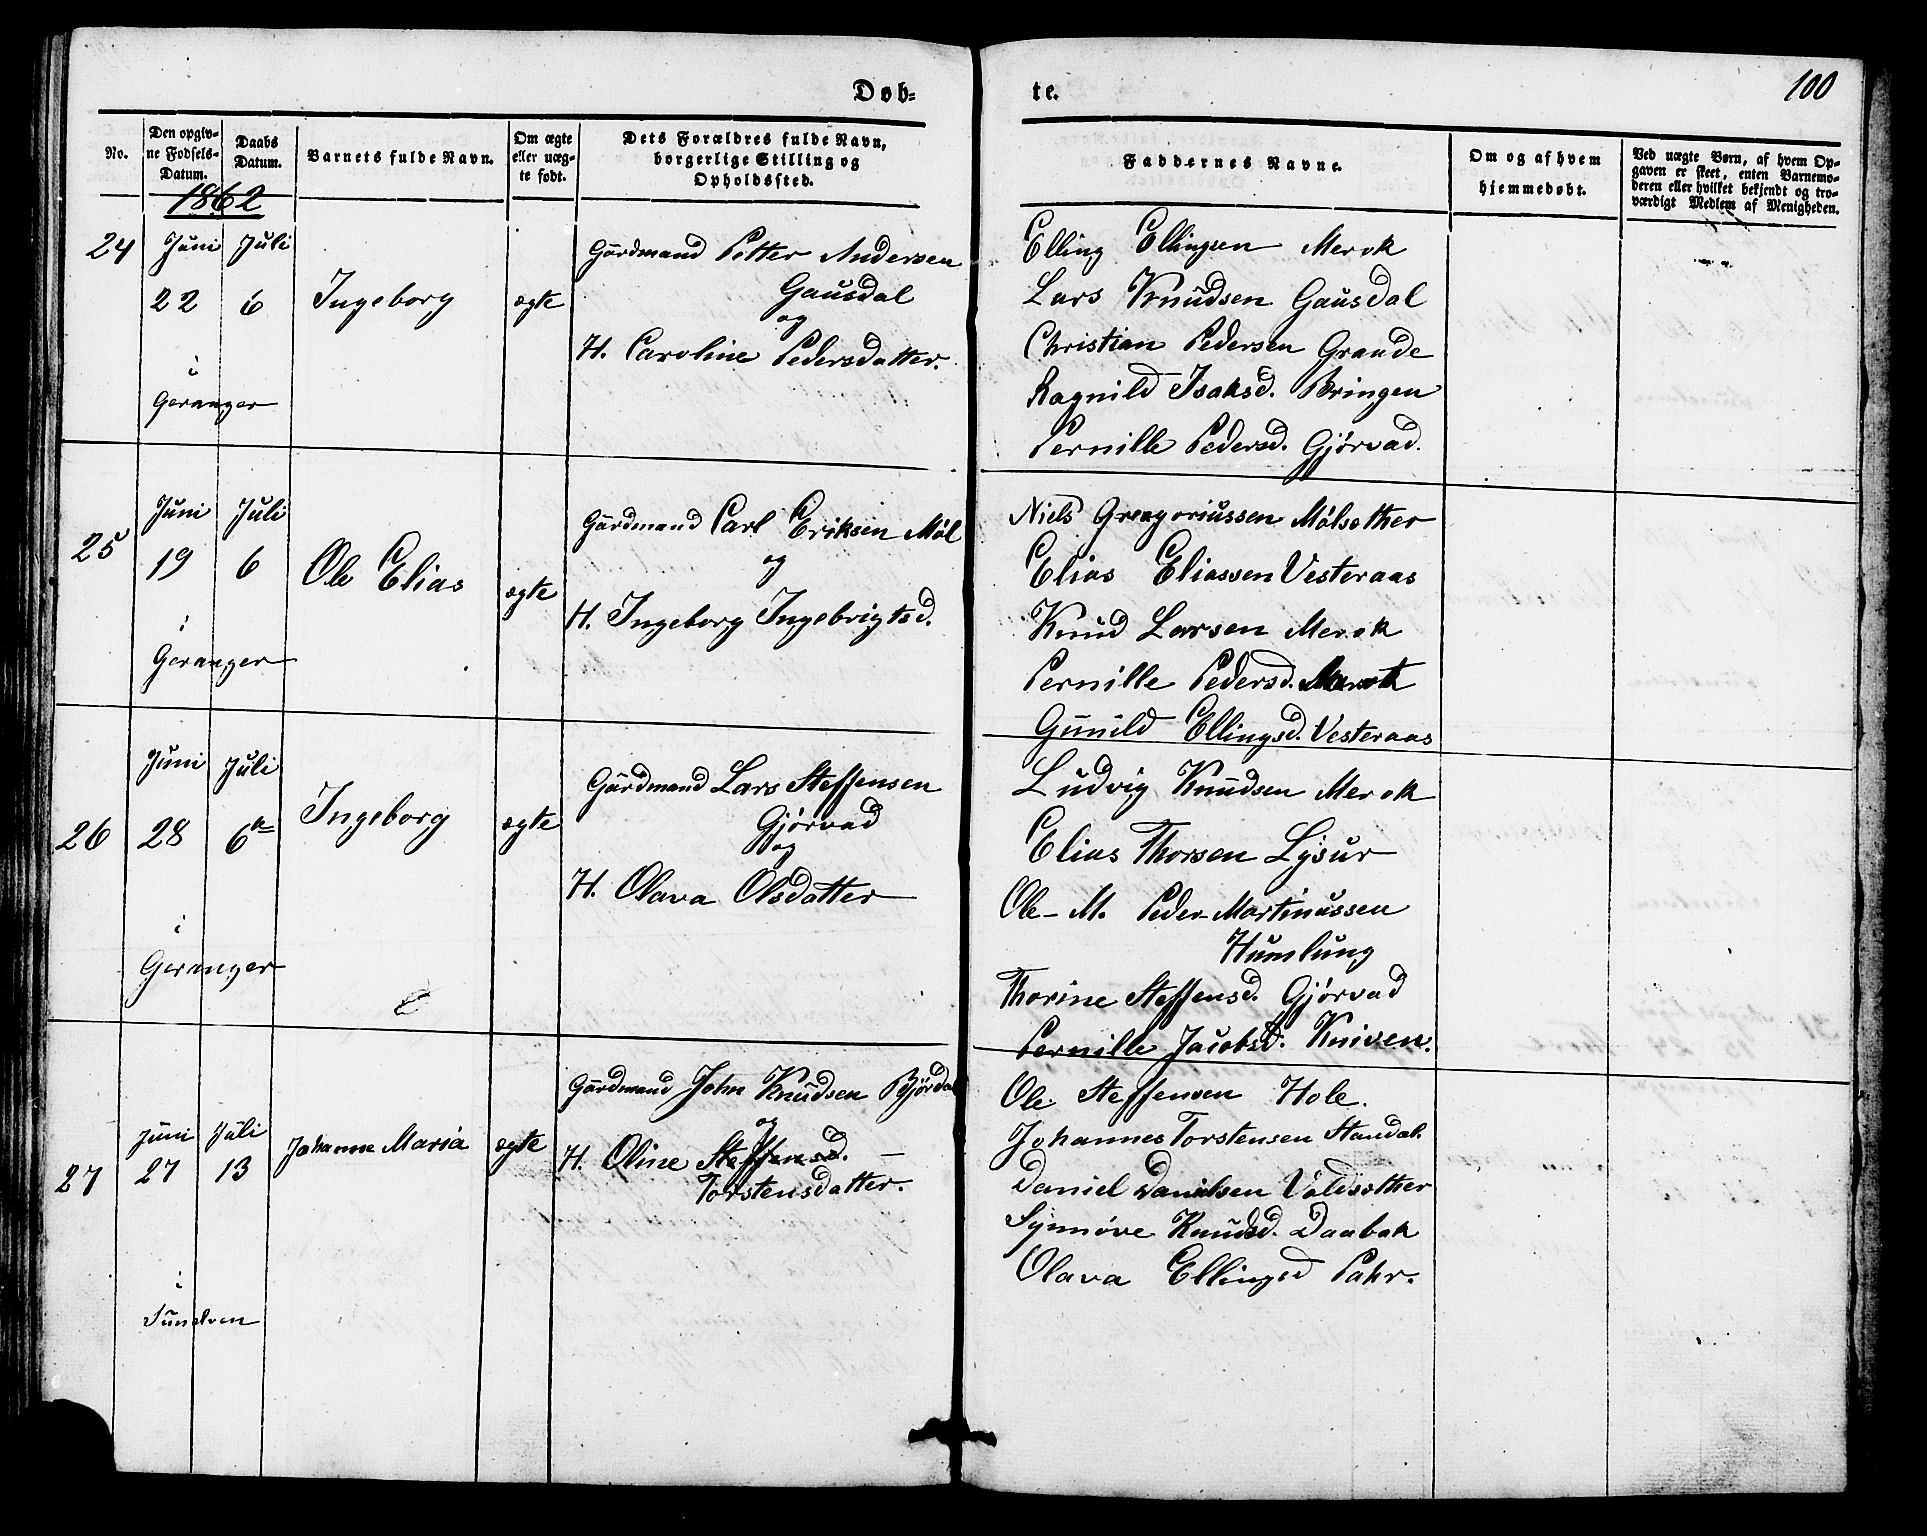 Døb-
te.
100
No.
Den opgiv-
ne Fødsels-
Datum.
Daabs
Datum.
Barnets fulde Navn.
Om ægte
eller uæg-
te født.
Dets Forældres fulde Navn,
borgerlige Stilling og
Opholdssted.
Faddernes Navne.
Om og af hvem
hjemmedøbt.
Ved uægte Børn, af hvem Op-
gaven er skeet, enten Barnemo-
deren eller hvilket bekjendt og tro-
værdigt Medlem af Menigheden.
1862
24
Juni
22
i
Geranger
Juli
6
Ingeborg
ægte
Gårdmand Petter Andersen
Gausdal
og
H. Caroline Pedersdatter.
Elling Ellingsen Merok
Lars Knudsen Gausdal
Christian Pedersen Grande
Ragnild Isaksd. Bringen
Pernille Pedersd. Gjørvad.
25
Juni
19
i
Geranger
Juli
6
Ole Elias
ægte
Gårdmand Carl Eriksen Møl
og
H. Ingeborg Ingebrigtsd.
Niels Gregoriussen Mølsæther
Elias Eliassen Vesteraas
Knud Larsen Merok
Pernille Pedersd. Merok
Gunild Ellingsd. Vesteraas
26
Juni
28
i
Geranger
Juli
6te
Ingeborg
ægte
Gårdmand Lars Steffensen
Gjørvad
og
H. Olava Olsdatter
Ludvig Knudsen Merok
Elias Thorsen Lysur
Ole M. Peder Martinussen
Humlung
Thorine Steffensd. Gjørvad
Pernille Jacobsd. Kniven.
27
Juni
27
i
Sunelven
Juli
13
Johanne Maria
ægte
Gårdmand John Knudsen Bjørdal
og
H. Oline Steffensd.
Torstensdatter.
Ole Steffensen Hole.
Johannes Torstensen Standal.
Daniel Danielsen Voldsæther
Synnøve Knudsd. Daabak
Olava Ellingsd Pahr.